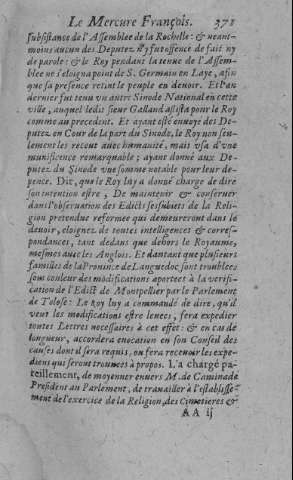 Le Mercure François. 371
subsistance de l'Assemblee de la Rochelle: & neant-
moins aucun des Deputez. n'y fut offencé de fait ny
de parole: & le Roy pendant la tenue de l'Assem-
blee ne s'eloigna point de S. Germain en Laye, afin
que sa presence retint le peuple en devoir. Et l'an
dernier fut tenu un autre Sinode National en ceste
ville, auquel ledit sieur Galland assista pour le Roy
comme au precedent. Et ayant esté envoyé des De-
putez en Cour de la part du Sinode, le Roy non seu-
lement les receut avec humanité, mais usa d'vne
munificence remarquable; ayant donné aux De-
putez du Sinode vne somme notable pour leur de-
pence. Dit, que le Roy luy a donné charge de dire
son intention estre, De maintenir & conserver
dans l'observation des Edicts ses subiets de la Reli-
gion pretendue reformee qui demeureront dans le
devoir, eloignez de toutes intelligences & corres-
pondances, tant dedans que dehors le Royaume,
mesmes avec les Anglois. Et d'autant que plusieurs
familles de la Province de Languedoc sont troublees
sous couleur des modifications aportees à la verifi-
cation de l'Edict de Montpellier par le Parlement
de Tolose: Le Roy luy a commandé de dire, qu'il
veut les modifications estre levees, fera expedier
toutes Lettres necessaires à cet effet: & en cas de
longueur, accordera evocation en son Conseil des
causes dont il sera requis, ou fera recevoir les expe-
diens qui seront trouvez à propos. L'a chargé pa-
reillement, de moyenner envers M. de Caminade
President au Parlement, de travailler à l'establisse-
ment de l'exercice de la Religion, des Cimetieres &
AA ij